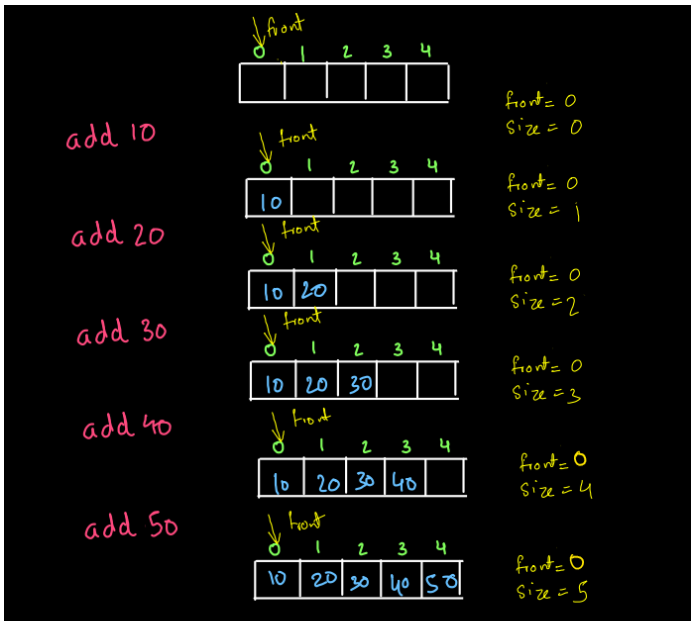 front
0 1 2 3 4
front = 0
size = 0
add 10
front
0 1 2 3 4
10
front = 0
size = 1
add 20
front
0 1 2 3 4
10 20
front = 0
size = 2
add 30
front
0 1 2 3 4
10 20 30
front = 0
size = 3
add 40
front
0 1 2 3 4
10 20 30 40
front = 0
size = 4
add 50
front
0 1 2 3 4
10 20 30 40 50
front = 0
size = 5